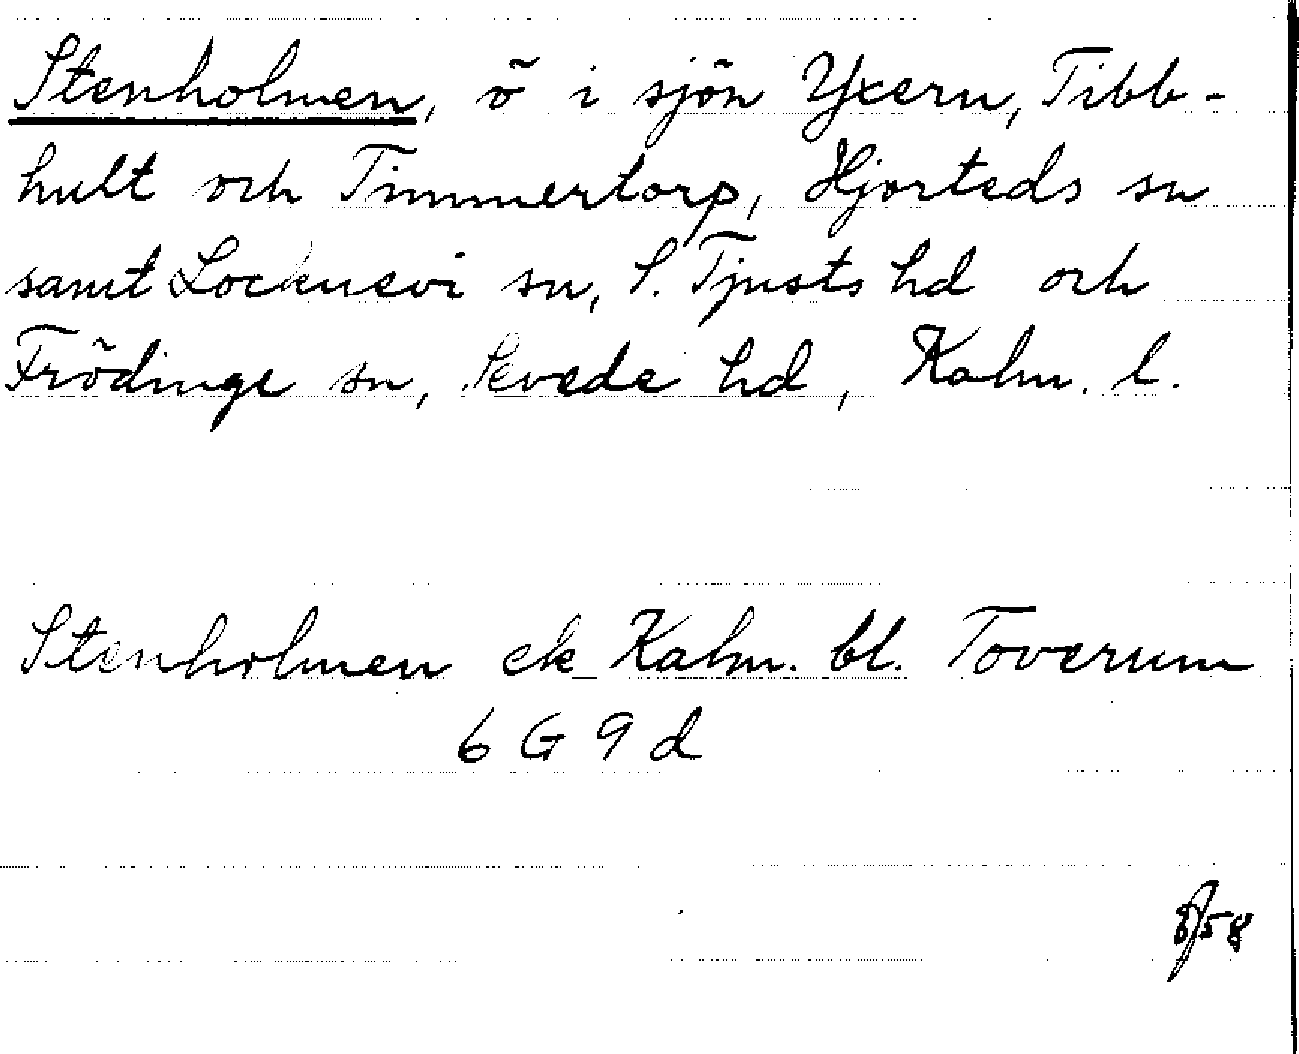 Stenholmen, ö i sjön Yxern, Tibb-
hult och Timmertorp, Hjorteds sn
samt Locknevi sn, S. Tjusts hd och
Frödinge sn, Sevede hd, Kalm. l.
Stenholmen ek Kalm. bl. Toverum
6 G 9 d